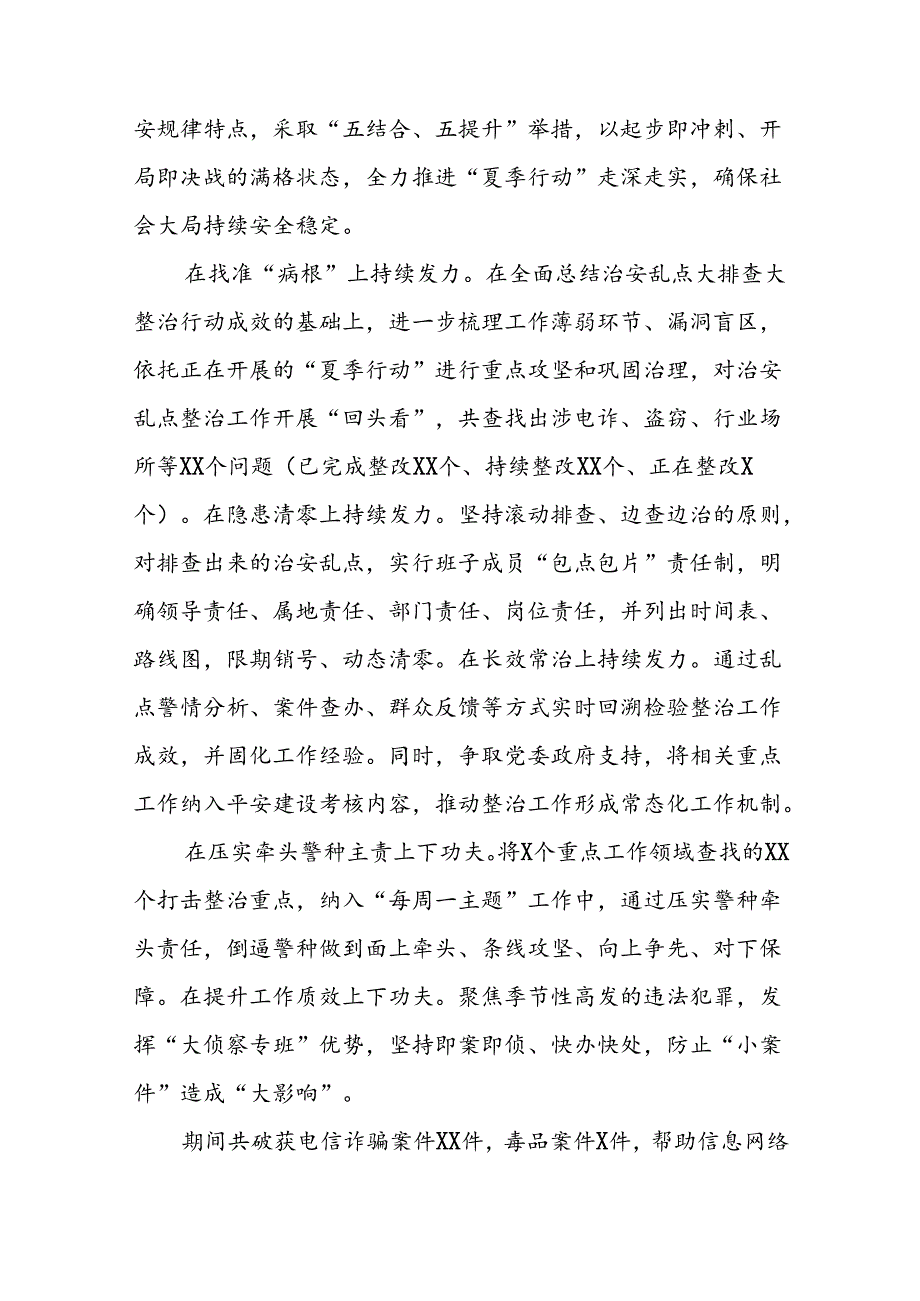 安规律特点，采取“五结合、五提升”举措，以起步即冲刺、开
局即决战的满格状态，全力推进“夏季行动”走深走实，确保社
会大局持续安全稳定。
在找准“病根”上持续发力。在全面总结治安乱点大排查大
整治行动成效的基础上，进一步梳理工作薄弱环节、漏洞盲区，
依托正在开展的“夏季行动”进行重点攻坚和巩固治理，对治安
乱点整治工作开展“回头看”，共查找出涉电诈、盗窃、行业场
所等XX个问题（已完成整改XX个、持续整改XX个、正在整改X
个）。在隐患清零上持续发力。坚持滚动排查、边查边治的原则，
对排查出来的治安乱点，实行班子成员“包点包片”责任制，明
确领导责任、属地责任、部门责任、岗位责任，并列出时间表、
路线图，限期销号、动态清零。在长效常治上持续发力。通过乱
点警情分析、案件查办、群众反馈等方式实时回溯检验整治工作
成效，并固化工作经验。同时，争取党委政府支持，将相关重点
工作纳入平安建设考核内容，推动整治工作形成常态化工作机制。
在压实牵头警种主责上下功夫。将X个重点工作领域查找的XX
个打击整治重点，纳入“每周一主题”工作中，通过压实警种牵
头责任，倒逼警种做到面上牵头、条线攻坚、向上争先、对下保
障。在提升工作质效上下功夫。聚焦季节性高发的违法犯罪，发
挥“大侦察专班”优势，坚持即案即侦、快办快处，防止“小案
件”造成“大影响”。
期间共破获电信诈骗案件XX件，毒品案件X件，帮助信息网络